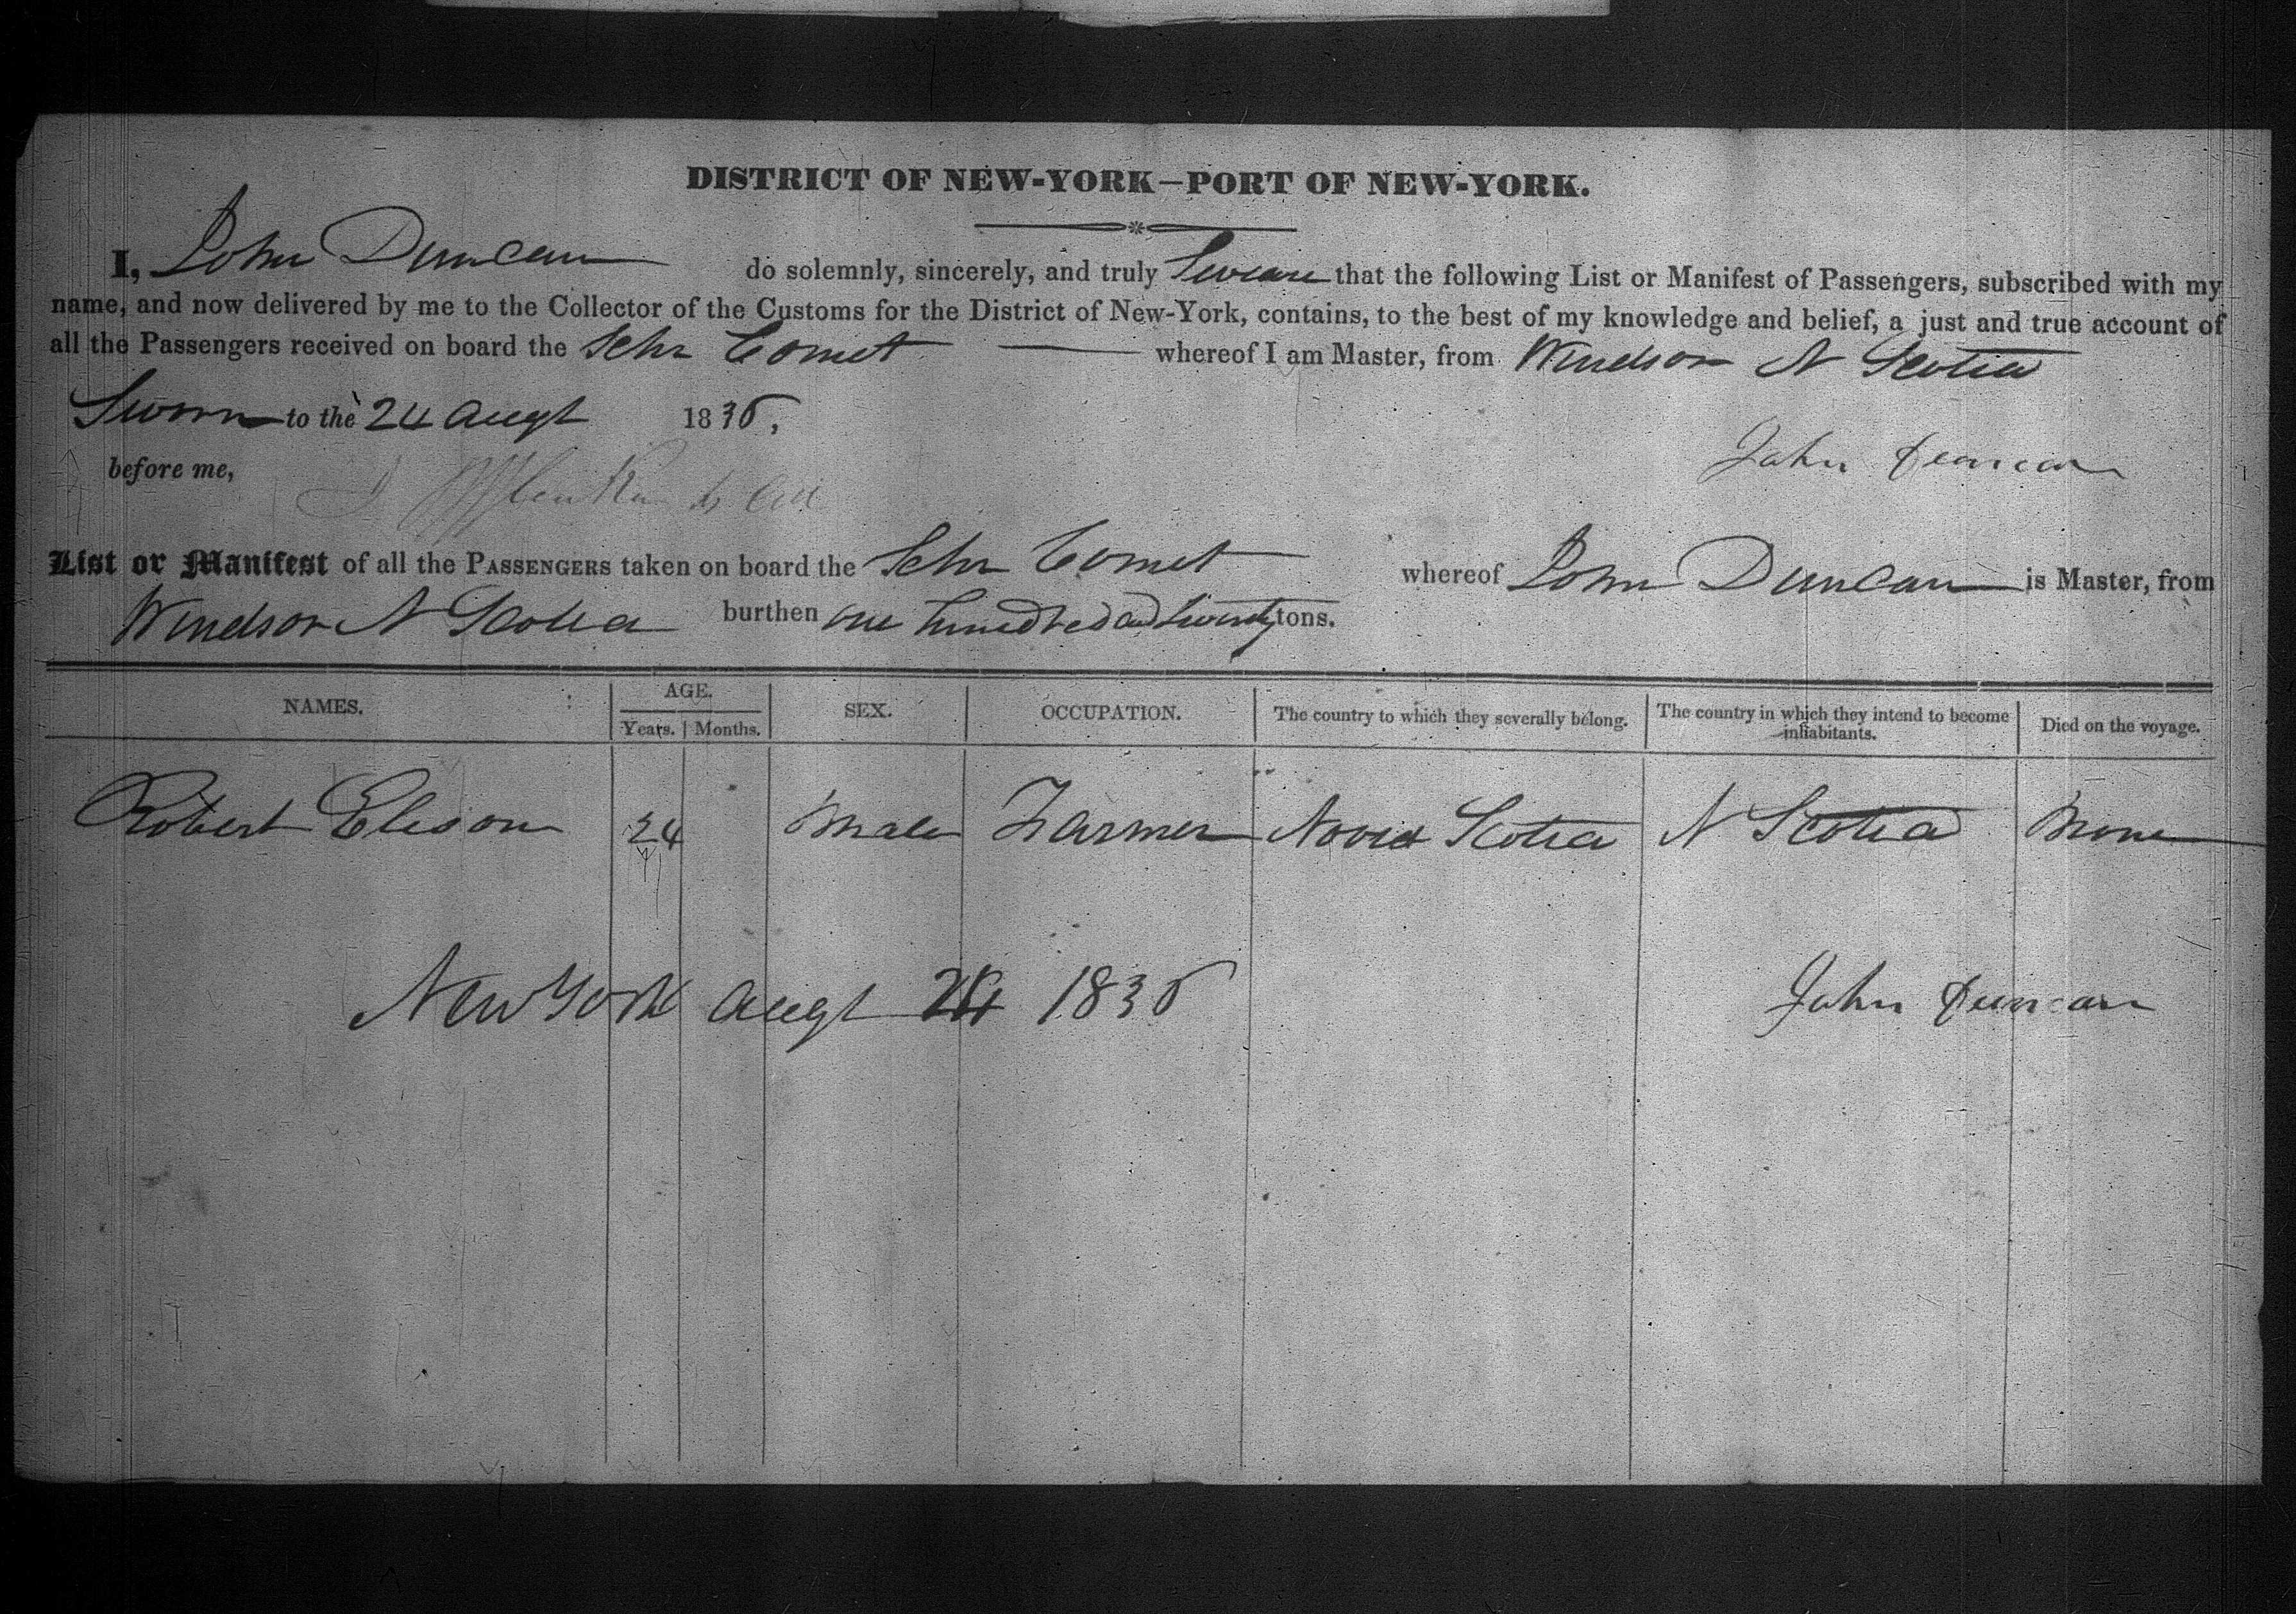 DISTRICT OF NEW-YORK—PORT OF NEW-YORK.
I, John Duncan do solemnly, sincerely, and truly Swear that the following List or Manifest of Passengers, subscribed with my
name, and now delivered by me to the Collector of the Customs for the District of New-York, contains, to the best of my knowledge and belief, a just and true account of
all the Passengers received on board the Schr Comet whereof I am Master, from Windsor N Scotia
Sworn to the 24 Augt 1835,
John Duncan
before me,
List or Manifest of all the PASSENGERS taken on board the Schr Comet whereof John Duncan is Master, from
Windsor N Scotia burthen one hundred and twenty tons.
NAMES. AGE. Years. Months. SEX. OCCUPATION. The country to which they severally belong. The country in which they intend to become inhabitants. Died on the voyage.
Robert Elison 24 Male Farmer Novia Scotia N Scotia None
New York Augt 24 1835 John Duncan